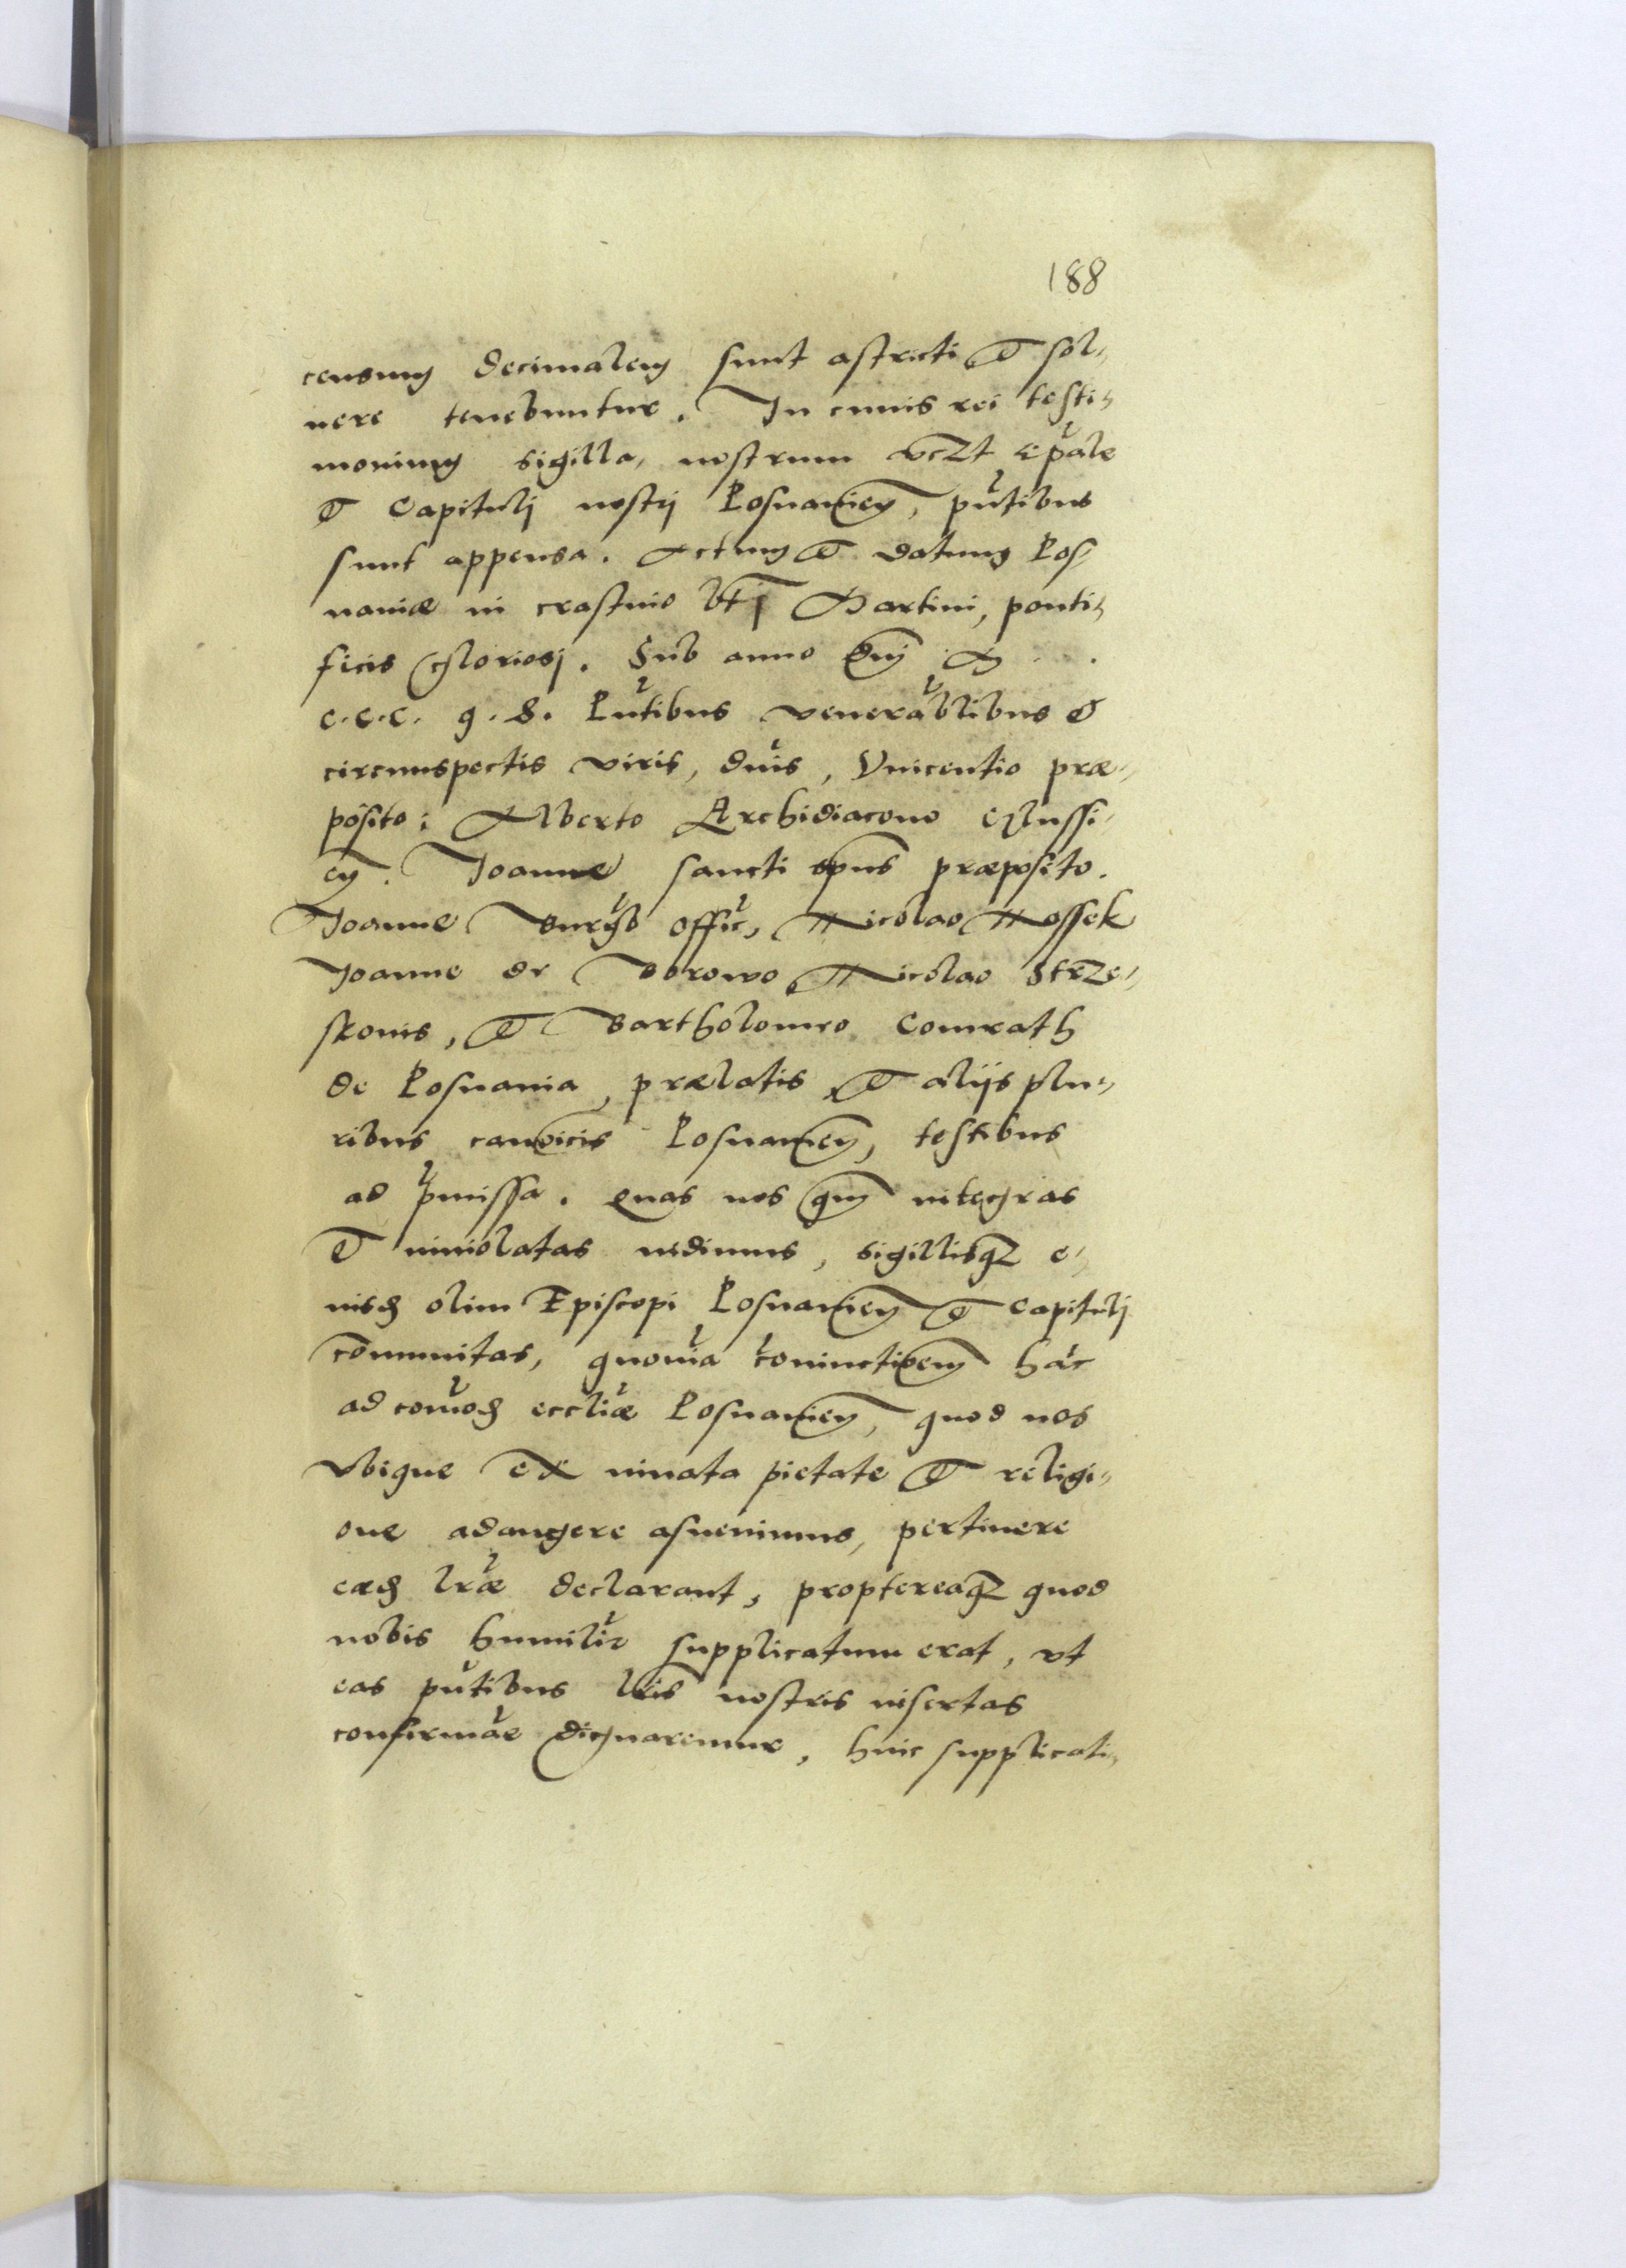 188
censum decimalem sunt astricti et sol-
uere tenebuntur. In cuius rei testi-
monium sigilla, nostrum vczt epale
et Capitulj nostrj Posnanien, putibus
sunt appensa. Actum et datum Pos
naniæ in crastino bti Martini, ponti-
ficis gloriosj. Sub anno dni M.
c.c.c. 9.8. Putibus venerablibus et
circumspectis viris, dnis, Vincentio præ-
posito; Alberto Archidiacono
en. Joanne sancti spus præposito.
Joanne offic, Nicolao Nossek
Joanne de Borowo Nicolao Strze-
skonis, et Bartholomeo Conrath
de Posnania, prælatis et alijs plu-
ribus canoicis Posnanien, testibus
ad pmissa. Quas nos qm integras
et inuiolatas uidimus, sigillisqz e-
iusd olim Episcopi Posnanien et Capitulj
comunitas, quonia coniunctioem hac
ad comod eccliæ Posnanien, quod nos
vbique ex innata pietate et religi-
one adaugere asueuimus, pertinere
eæd lræ declarant, proptereaqz quod
nobis humilir supplicatum erat, vt
eas putibus lris nostris insertas
confirmae dignaremur, huic supplicati-